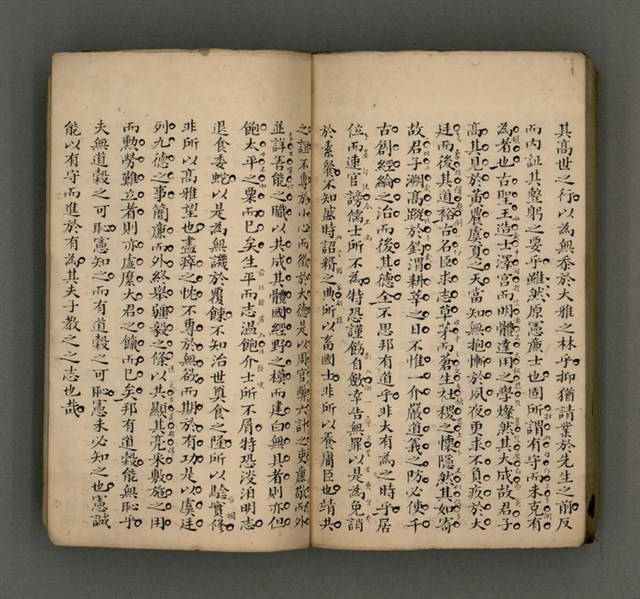 其高世之行以為無忝於大雅之林乎抑猶請業於先生之前反
而內証其整躬之要乎雖然原憲廉士也固所謂有守而未克有
為者也古聖王造士澤宮而明體達用之學燦然其大成故君子
高其見於黃農虞夏之天當知無抱慚於夙夜更求不負疚於大
廷而後其道裕古名臣求志草茅而蒼生社稷之懷隱然其如寄
故君子溯高蹤於釣渭耕莘之日不惟一介嚴道義之防必使千
古創經綸之治而後其德全不思邦有道乎非大有為之時乎居
位而速官謗儒士所不為特恐謹飭自敏幸告無罪以是為免誚
於素餐不知盛時詔糈之典所以畜國士非所以養庸臣也靖共
之謹不專於小心而徵於大德是以周官弊六計之吏廉敬而外
並詳善能之職以共成其體國經野之模而建白無具者則亦但
飽太平之粟而已矣生平而志溫飽介士所不屑特恐淡泊明志
退食委蛇以是為無譏於覆餗不知治世異食之隆所以驗實修
非所以高雅望也盡瘁之忱不專於無欲而期於有功是以虞廷
列九德之事簡廉而外終舉彊毅之修以共顯其亮采敷施之用
而勳勞難立者則亦虛縻大君之餼而已矣邦有道穀能無恥乎
夫無道穀之可恥憲知之而有道穀之可恥憲未必知之也憲誠
能以有守而進於有為其夫子教之之志也哉